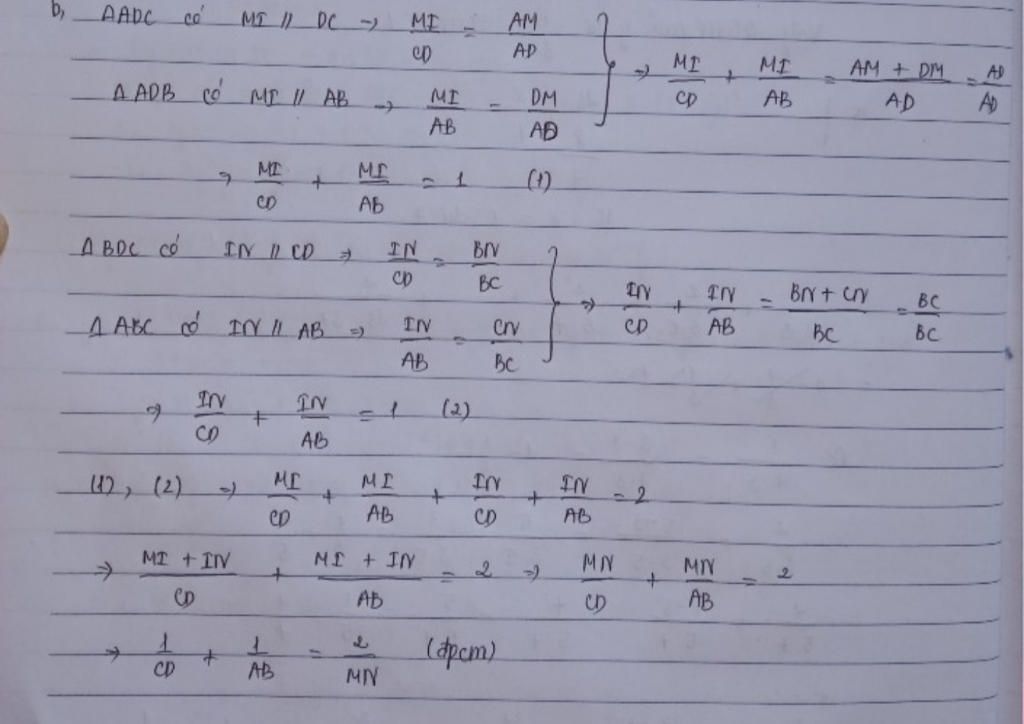 b, ΔADC có MI // DC → MI/CD = AM/AD
ΔADB có MI // AB → MI/AB = DM/AD } ⇒ MI/CD + MI/AB = (AM + DM)/AD = AD/AD
⇒ MI/CD + MI/AB = 1 (1)
ΔBDC có IN // CD ⇒ IN/CD = BN/BC
ΔABC có IN // AB ⇒ IN/AB = CN/BC } ⇒ IN/CD + IN/AB = (BN + CN)/BC = BC/BC
⇒ IN/CD + IN/AB = 1 (2)
(1), (2) ⇒ MI/CD + MI/AB + IN/CD + IN/AB = 2
⇒ (MI + IN)/CD + (MI + IN)/AB = 2 ⇒ MN/CD + MN/AB = 2
⇒ 1/CD + 1/AB = 2/MN (đpcm)